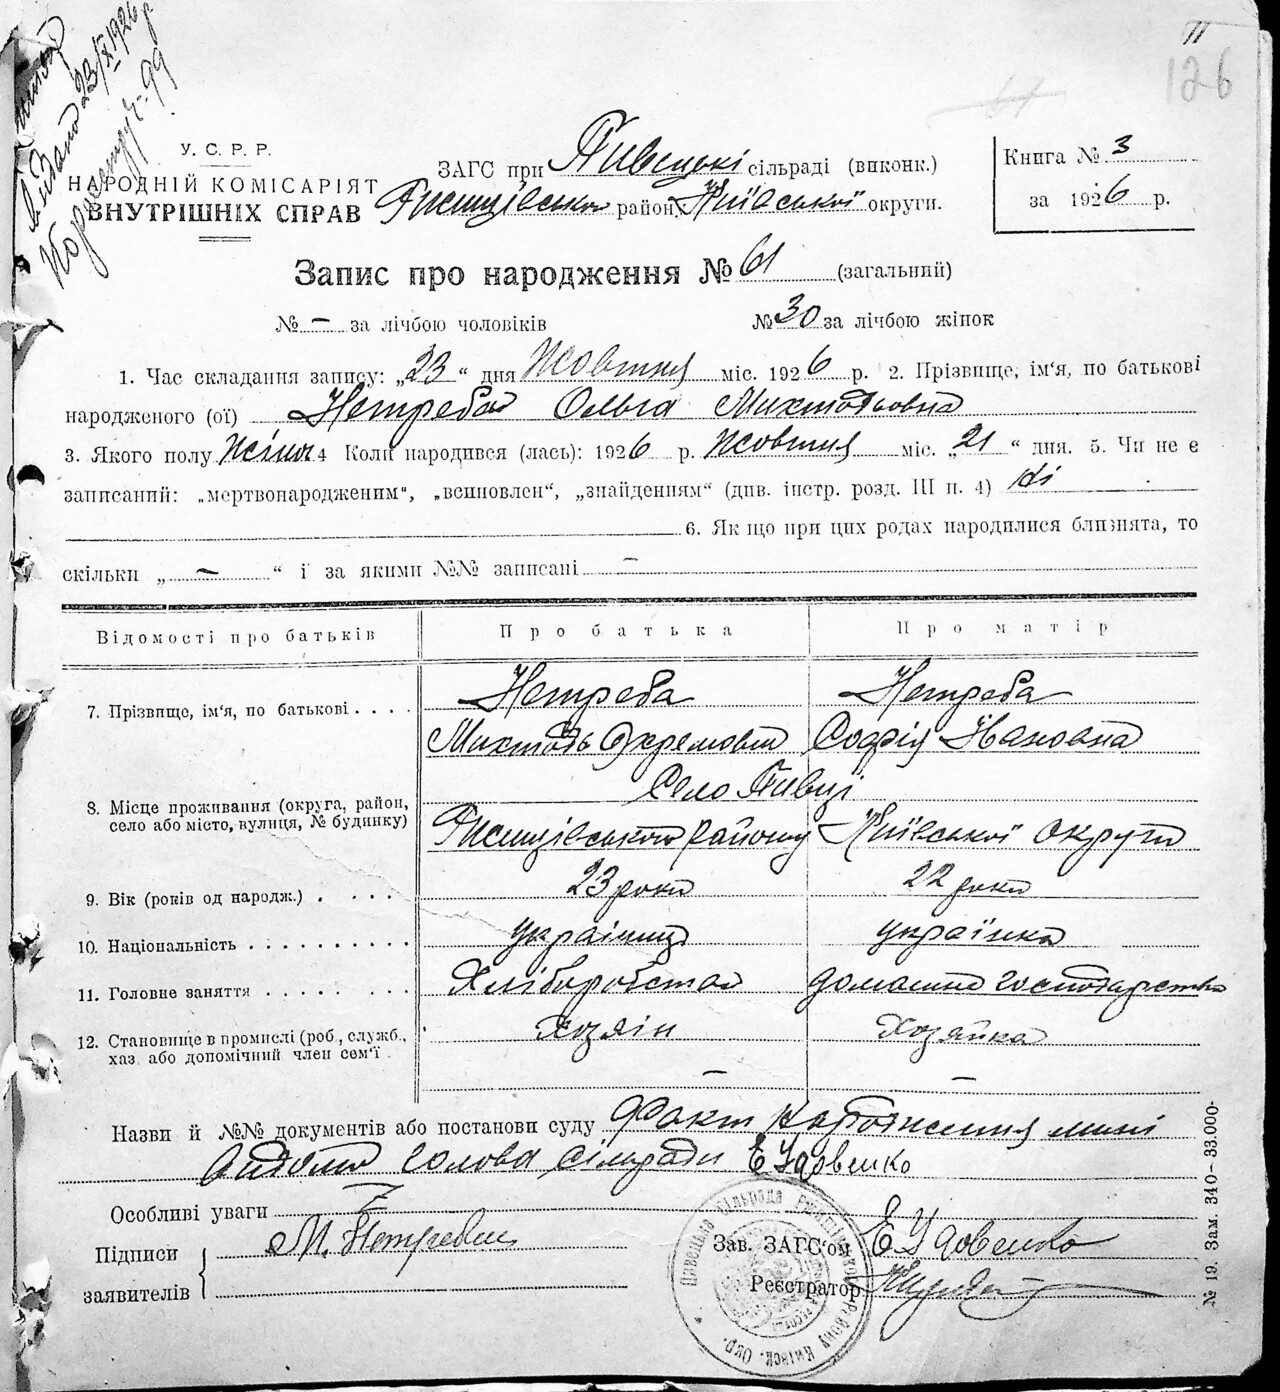 11
126
61
Видано 23/XI 1926 р.
У. С. Р. Р.
НАРОДНІЙ КОМІСАРІЯТ
ВНУТРІШНІХ СПРАВ
ЗАГС при Пивецькі сільраді (виконк.)
Ржищівського району Київської округи.
Книга № 3
за 1926 р.
Запис про народження № 61 (загальний)
№ – за лічбою чоловіків № 30 за лічбою жінок
1. Час складання запису: „23“ дня Жовтня міс. 1926 р. 2. Прізвище, ім'я, по батькові
народженого (ої) Нетреба Ольга Михтодьовна
3. Якого полу Жіноч. 4 Коли народився (лась): 1926 р. Жовтня міс. „21“ дня. 5. Чи не є
записаний: „мертвонародженим“, „всиновлен“, „знайденням“ (див. інстр. розд. III п. 4) Ні
6. Як що при цих родах народилися близнята, то
скільки „ – “ і за якими №№ записані –
Відомості про батьків Про батька Про матір
7. Прізвище, ім'я, по батькові . . . . Нетреба Нетреба
Михтодь Охремович Софія Івановна
Село Пивці
8. Місце проживання (округа, район,
село або місто, вулиця, № будинку)
Ржищівського Району Київської Округи
9. Вік (років од народж.) . . . . 23 роки 22 роки
10. Національність . . . . . . . . . . українець українка
11. Головне заняття . . . . . . . . Хліборобство домашнє господарство
12. Становище в промислі (роб., служб., Хозяін Хозяйка
хаз. або допомічний член сем'ї .
– –
Назви й №№ документів або постанови суду Факт народження мині
видомо голова сільради Е Удовенко
Особливі уваги
Підписи
заявителів
М. Нетребин
Зав. ЗАГС'ом Е Удовенко
Реєстратор
№ 19. Зам. 340–33.000·